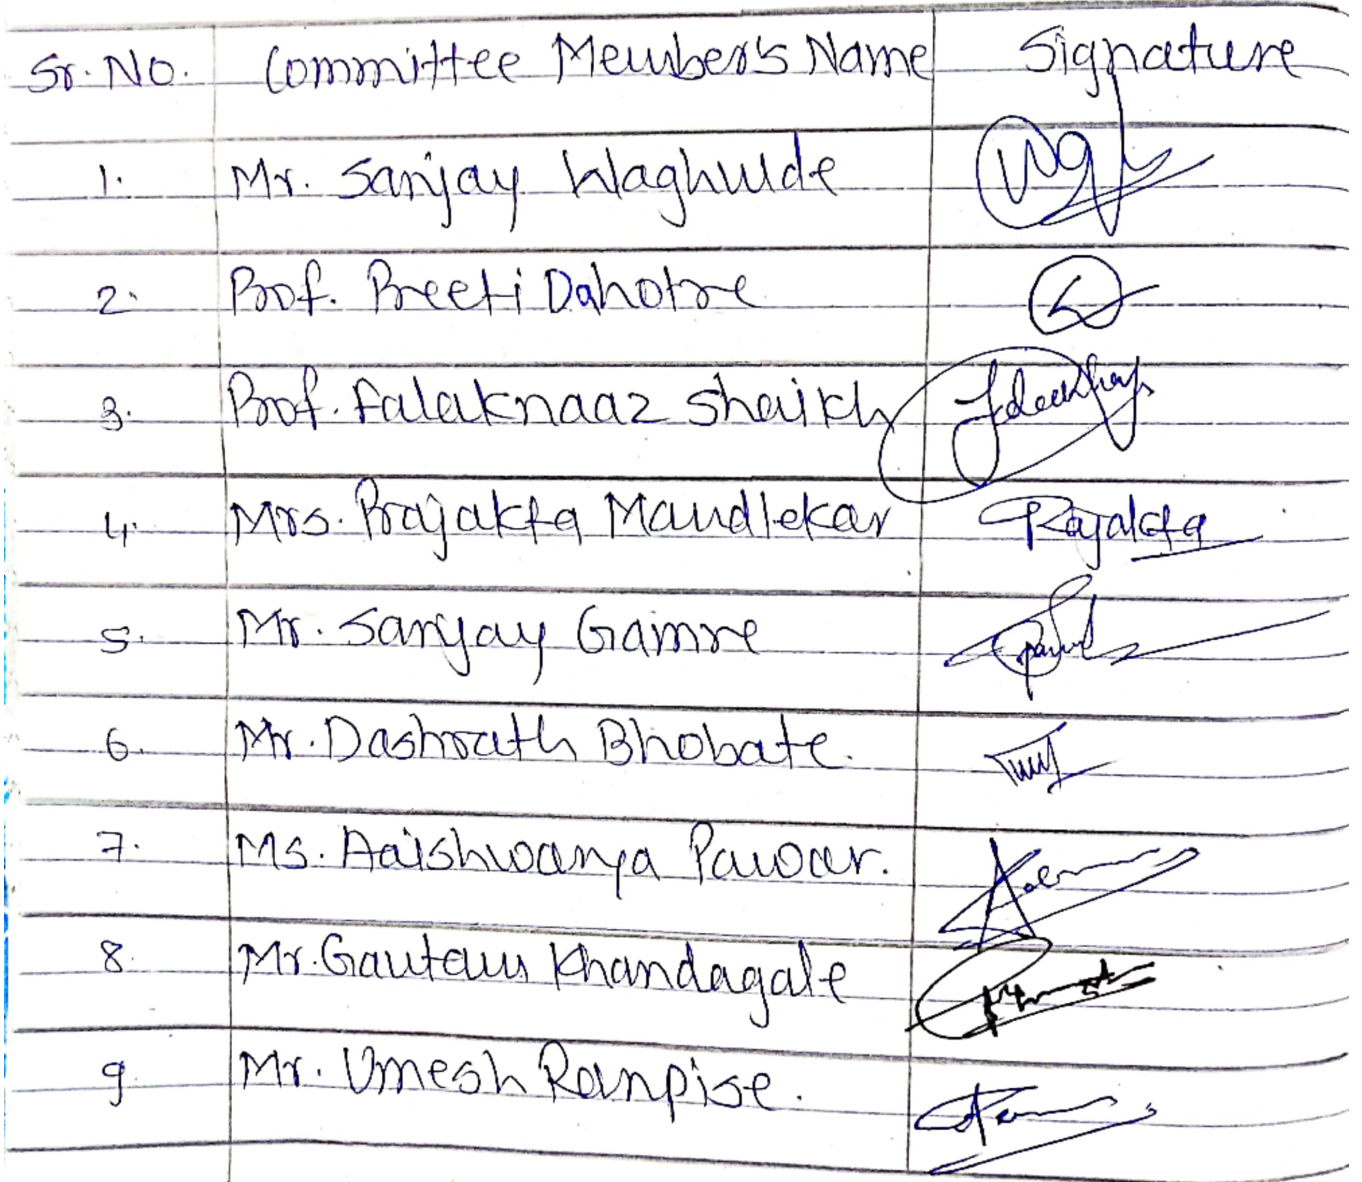 Sr. No. Committee Member's Name Signature
1. Mr. Sanjay Waghulde
2. Prof. Preeti Dahotre
3. Prof. Falaknaaz Shaikh
4. Mrs. Prajakta Mandlekar Prajakta
5. Mr. Sanjay Gamre
6. Mr. Dashrath Bhobate.
7. Ms. Aaishwarya Pawar.
8. Mr. Gautam Khandagale
9. Mr. Umesh Ranpise.